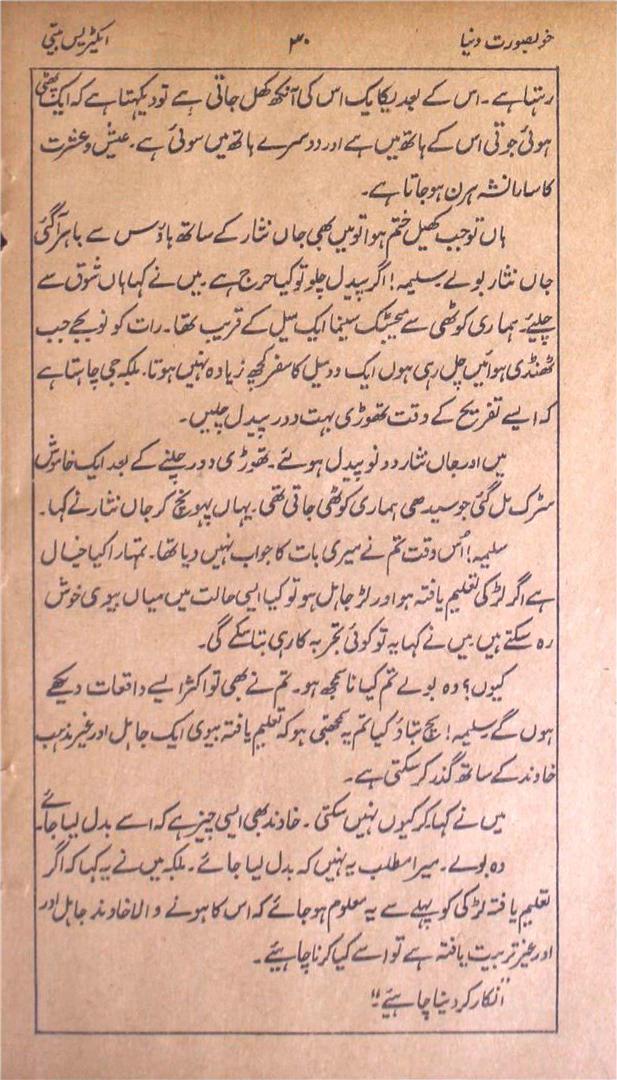 خوبصورت دنیا ۳۰ ایکٹریس بیتی
رہتا ہے۔ اس کے بعد یکایک اس کی آنکھ کھل جاتی ہے تو دیکھتا ہے کہ ایک پھٹی
ہوئی جوتی اس کے ہاتھ میں ہے اور دوسرے ہاتھ میں سوئی ہے۔ عیش و عشرت
کا سارا نشہ ہرن ہو جاتا ہے۔
ہاں تو جب کھیل ختم ہوا تو میں بھی جاں نثار کے ساتھ ہاؤس سے باہر آگئی
جاں نثار بولے سلیمہ! اگر پیدل چلو تو کیا حرج ہے۔ میں نے کہا ہاں شوق سے
چلیئے۔ ہماری کوٹھی سے میجسٹک سینما ایک میل کے قریب تھا۔ رات کو نو بجے جب
ٹھنڈی ہوائیں چل رہی ہوں ایک دو میل کا سفر کچھ زیادہ نہیں ہوتا۔ بلکہ جی چاہتا ہے
کہ ایسے تفریح کے وقت تھوڑی بہت دور پیدل چلیں۔
میں اور جاں نثار دونو پیدل ہوئے۔ تھوڑی دور چلنے کے بعد ایک خاموش
سڑک مل گئی جو سیدھی ہماری کوٹھی جاتی تھی۔ یہاں پہونچ کر جاں نثار نے کہا۔
سلیمہ! اُس وقت تم نے میری بات کا جواب نہیں دیا تھا۔ تمہارا کیا خیال
ہے اگر لڑکی تعلیم یافتہ ہو اور لڑکا جاہل ہو تو کیا ایسی حالت میں میاں بیوی خوش
رہ سکتے ہیں۔ میں نے کہا یہ تو کوئی تجربہ کار ہی بتا سکے گی۔
کیوں؟ وہ بولے تم کیا ناسمجھ ہو۔ تم نے بھی تو اکثر ایسے واقعات دیکھے
ہوں گے سلیمہ! سچ بتاؤ کیا تم یہ سمجھتی ہو کہ تعلیم یافتہ بیوی ایک جاہل اور غیر مذہب
خاوند کے ساتھ گذر کر سکتی ہے۔
میں نے کہا کر کیوں نہیں سکتی۔ خاوند بھی ایسی چیز ہے کہ اسے بدل لیا جائے۔
وہ بولے۔ میرا مطلب یہ نہیں کہ بدل لیا جائے۔ بلکہ میں نے یہ کہا کہ اگر
تعلیم یافتہ لڑکی کو پہلے سے یہ معلوم ہو جائے کہ اس کا ہونے والا خاوند جاہل اور
اور غیر تربیت یافتہ ہے تو اسے کیا کرنا چاہیئے۔
"انکار کر دینا چاہیئے"۔